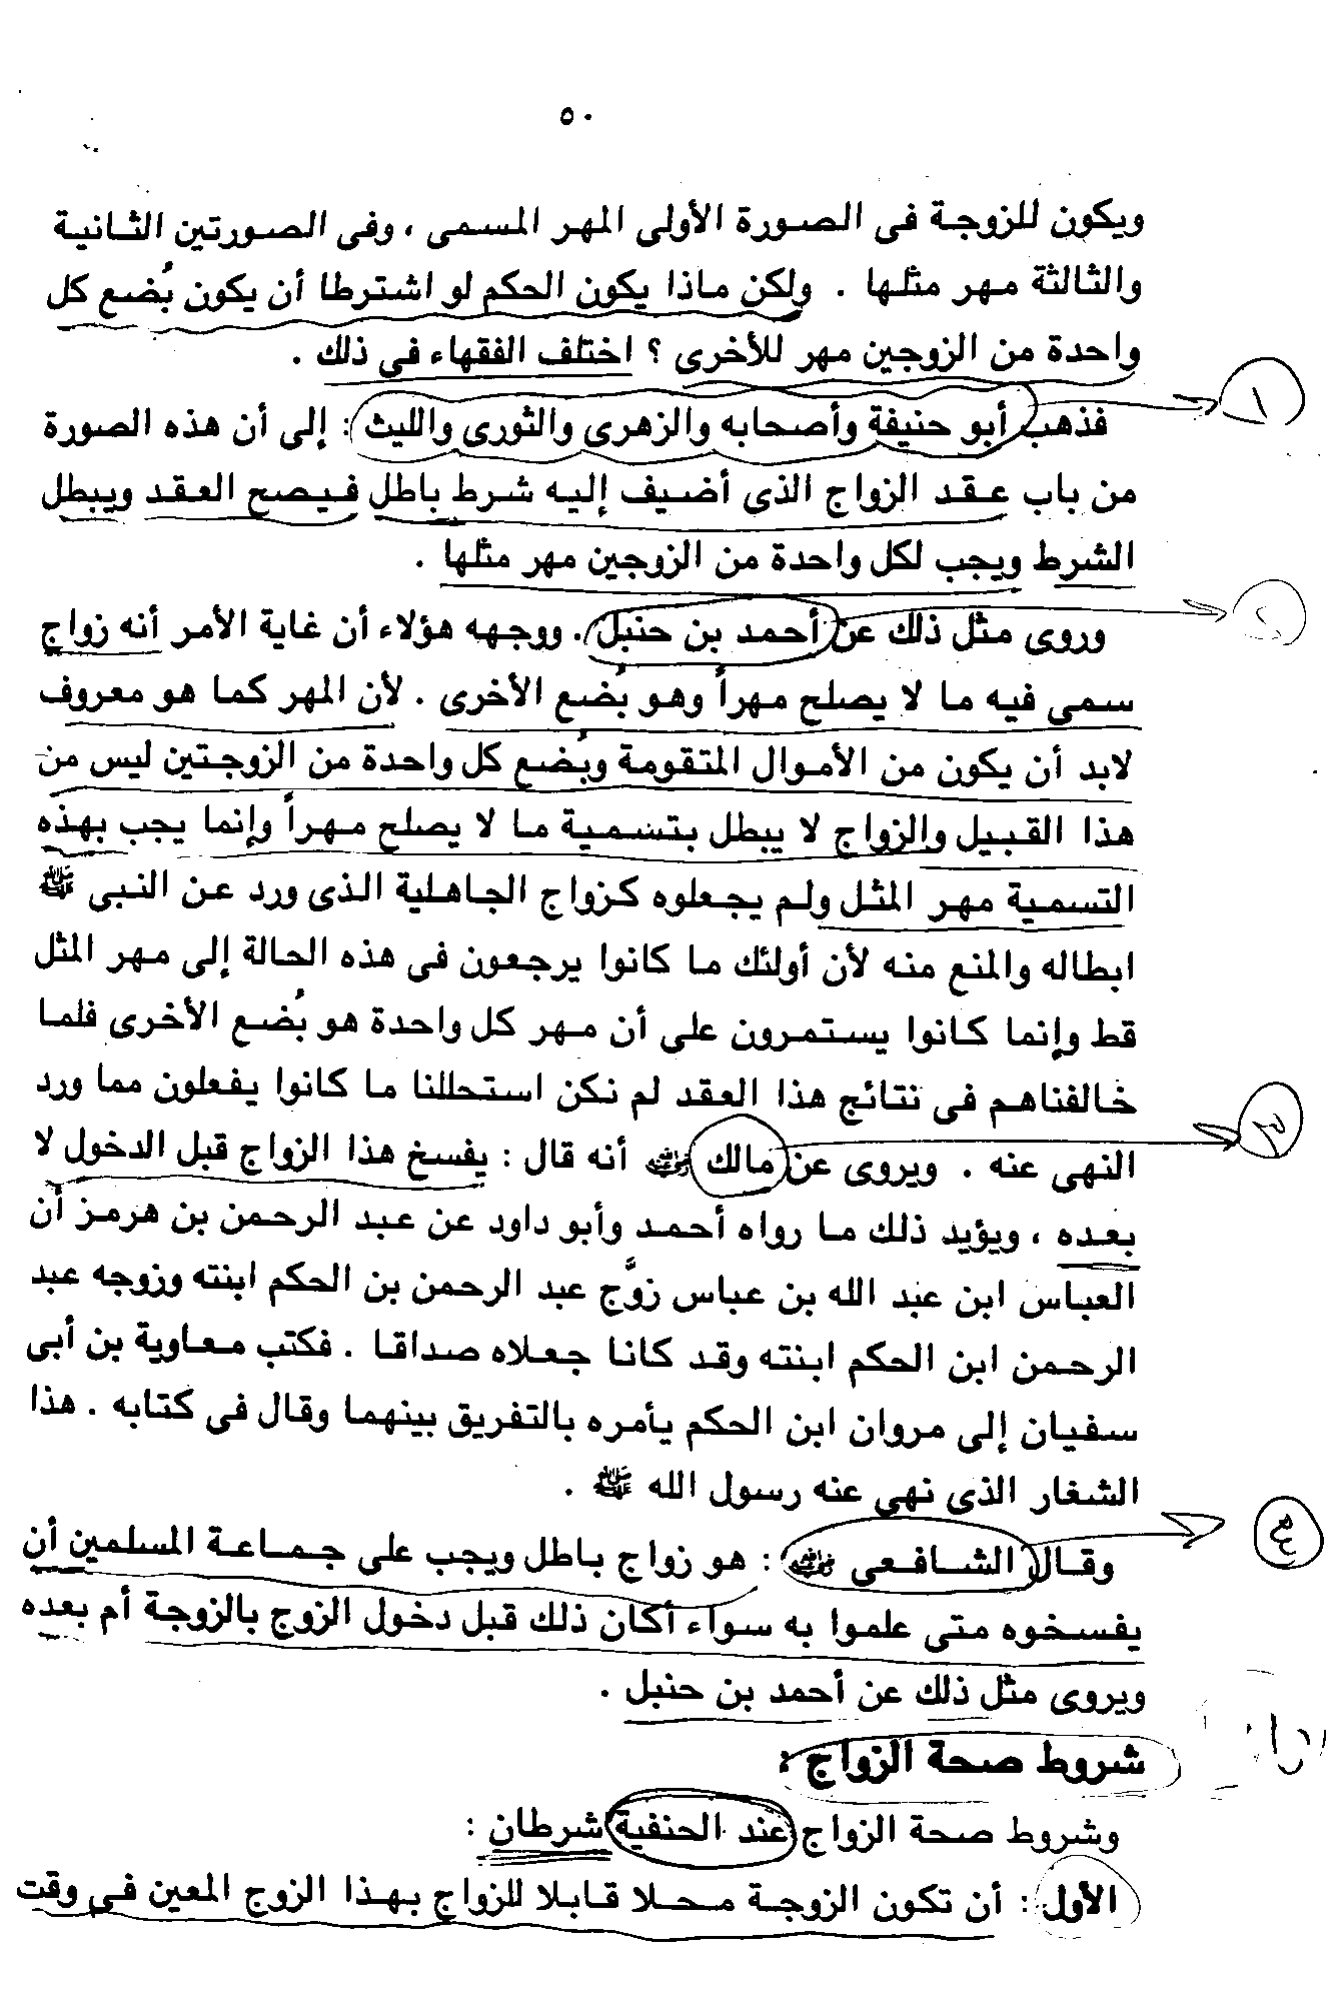 ٥٠
ويكون للزوجة فى الصورة الأولى المهر المسمى ، وفى الصورتين الثانية
والثالثة مهر مثلها . ولكن ماذا يكون الحكم لو اشترطا أن يكون بُضع كل
واحدة من الزوجين مهر للأخرى ؟ اختلف الفقهاء فى ذلك .
١
فذهب أبو حنيفة وأصحابه والزهرى والثورى والليث : إلى أن هذه الصورة
من باب عقد الزواج الذى أضيف إليه شرط باطل فيصح العقد ويبطل
الشرط ويجب لكل واحدة من الزوجين مهر مثلها .
٢
وروى مثل ذلك عن أحمد بن حنبل . ووجهه هؤلاء أن غاية الأمر أنه زواج
سمى فيه ما لا يصلح مهراً وهو بُضع الأخرى . لأن المهر كما هو معروف
لابد أن يكون من الأموال المتقومة وبُضع كل واحدة من الزوجتين ليس من
هذا القبيل والزواج لا يبطل بتسمية ما لا يصلح مهراً وإنما يجب بهذه
التسمية مهر المثل ولم يجعلوه كزواج الجاهلية الذى ورد عن النبى ﷺ
ابطاله والمنع منه لأن أولئك ما كانوا يرجعون فى هذه الحالة إلى مهر المثل
قط وإنما كانوا يستمرون على أن مهر كل واحدة هو بُضع الأخرى فلما
خالفناهم فى نتائج هذا العقد لم نكن استحللنا ما كانوا يفعلون مما ورد
٣
النهى عنه . ويروى عن مالك رضي الله عنه أنه قال : يفسخ هذا الزواج قبل الدخول لا
بعده ، ويؤيد ذلك ما رواه أحمد وأبو داود عن عبد الرحمن بن هرمز أن
العباس ابن عبد الله بن عباس زوَّج عبد الرحمن بن الحكم ابنته وزوجه عبد
الرحمن ابن الحكم ابنته وقد كانا جعلاه صداقا . فكتب معاوية بن أبى
سفيان إلى مروان ابن الحكم يأمره بالتفريق بينهما وقال فى كتابه . هذا
الشغار الذى نهى عنه رسول الله ﷺ .
٤
وقال الشافعى رضي الله عنه : هو زواج باطل ويجب على جماعة المسلمين أن
يفسخوه متى علموا به سواء أكان ذلك قبل دخول الزوج بالزوجة أم بعده
ويروى مثل ذلك عن أحمد بن حنبل .
شروط صحة الزواج :
وشروط صحة الزواج عند الحنفية شرطان :
الأول : أن تكون الزوجة محلا قابلا للزواج بهذا الزوج المعين فى وقت